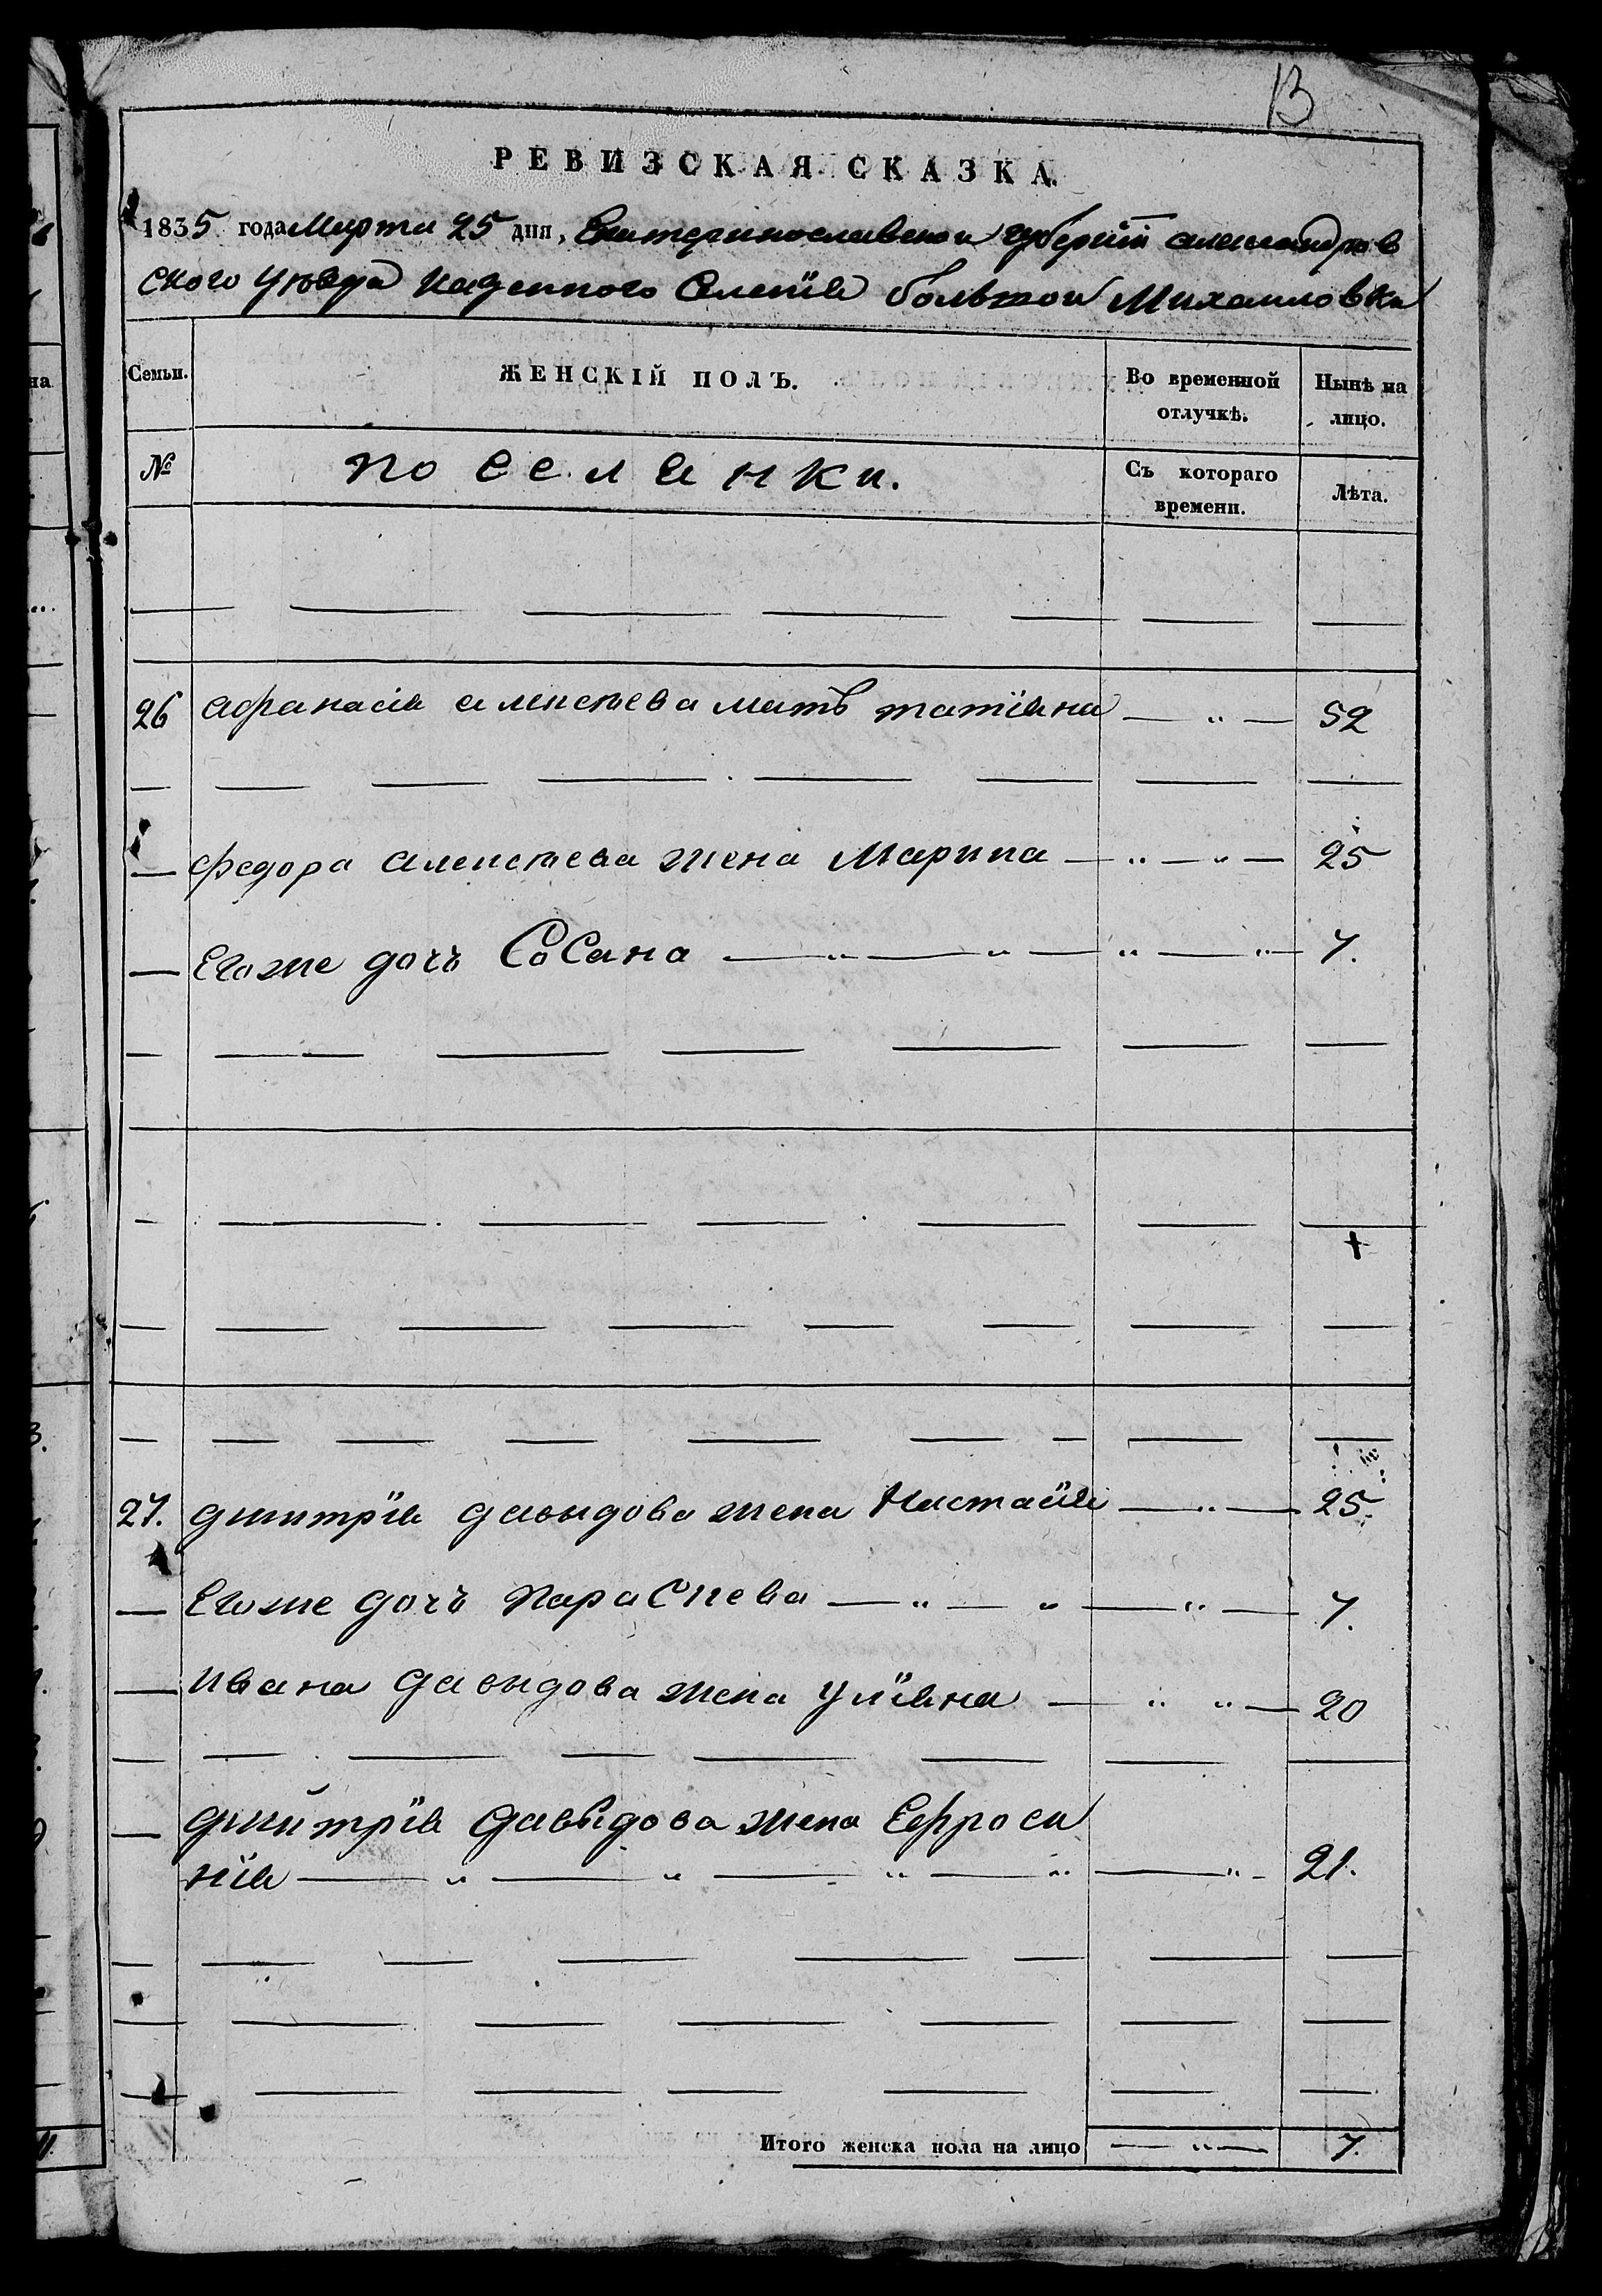 13
РЕВИЗСКАЯ СКАЗКА.
1835 года Марта 25 дня, Екатеринославской губернїи александров
ского уѣзда казенного Селенїя большой Михаиловки
Семьи. ЖЕНСКІЙ ПОЛЪ. Во временной отлучкѣ. Нынѣ на лицо.
№ поселянки. Съ котораго времени. Лѣта.
26 афанасія алексѣева мать татїяна — „ — 52
— федора алексѣева жена Марина — „ — „ — 25
— Егоже дочъ СоСана — „ — „ — „ — „ — 7.
27. дмитрїя давыдова жена Настасїя — „ — 25.
— Егоже дочъ параСкева — „ — „ — „ — 7.
— ивана давыдова жена улїяна — „ „ — 20
— дмитрїя давыдова жена Ефроси
нїя — „ — „ — „ — „ — „ - 21.
Итого женска пола на лицо — „ — 7.